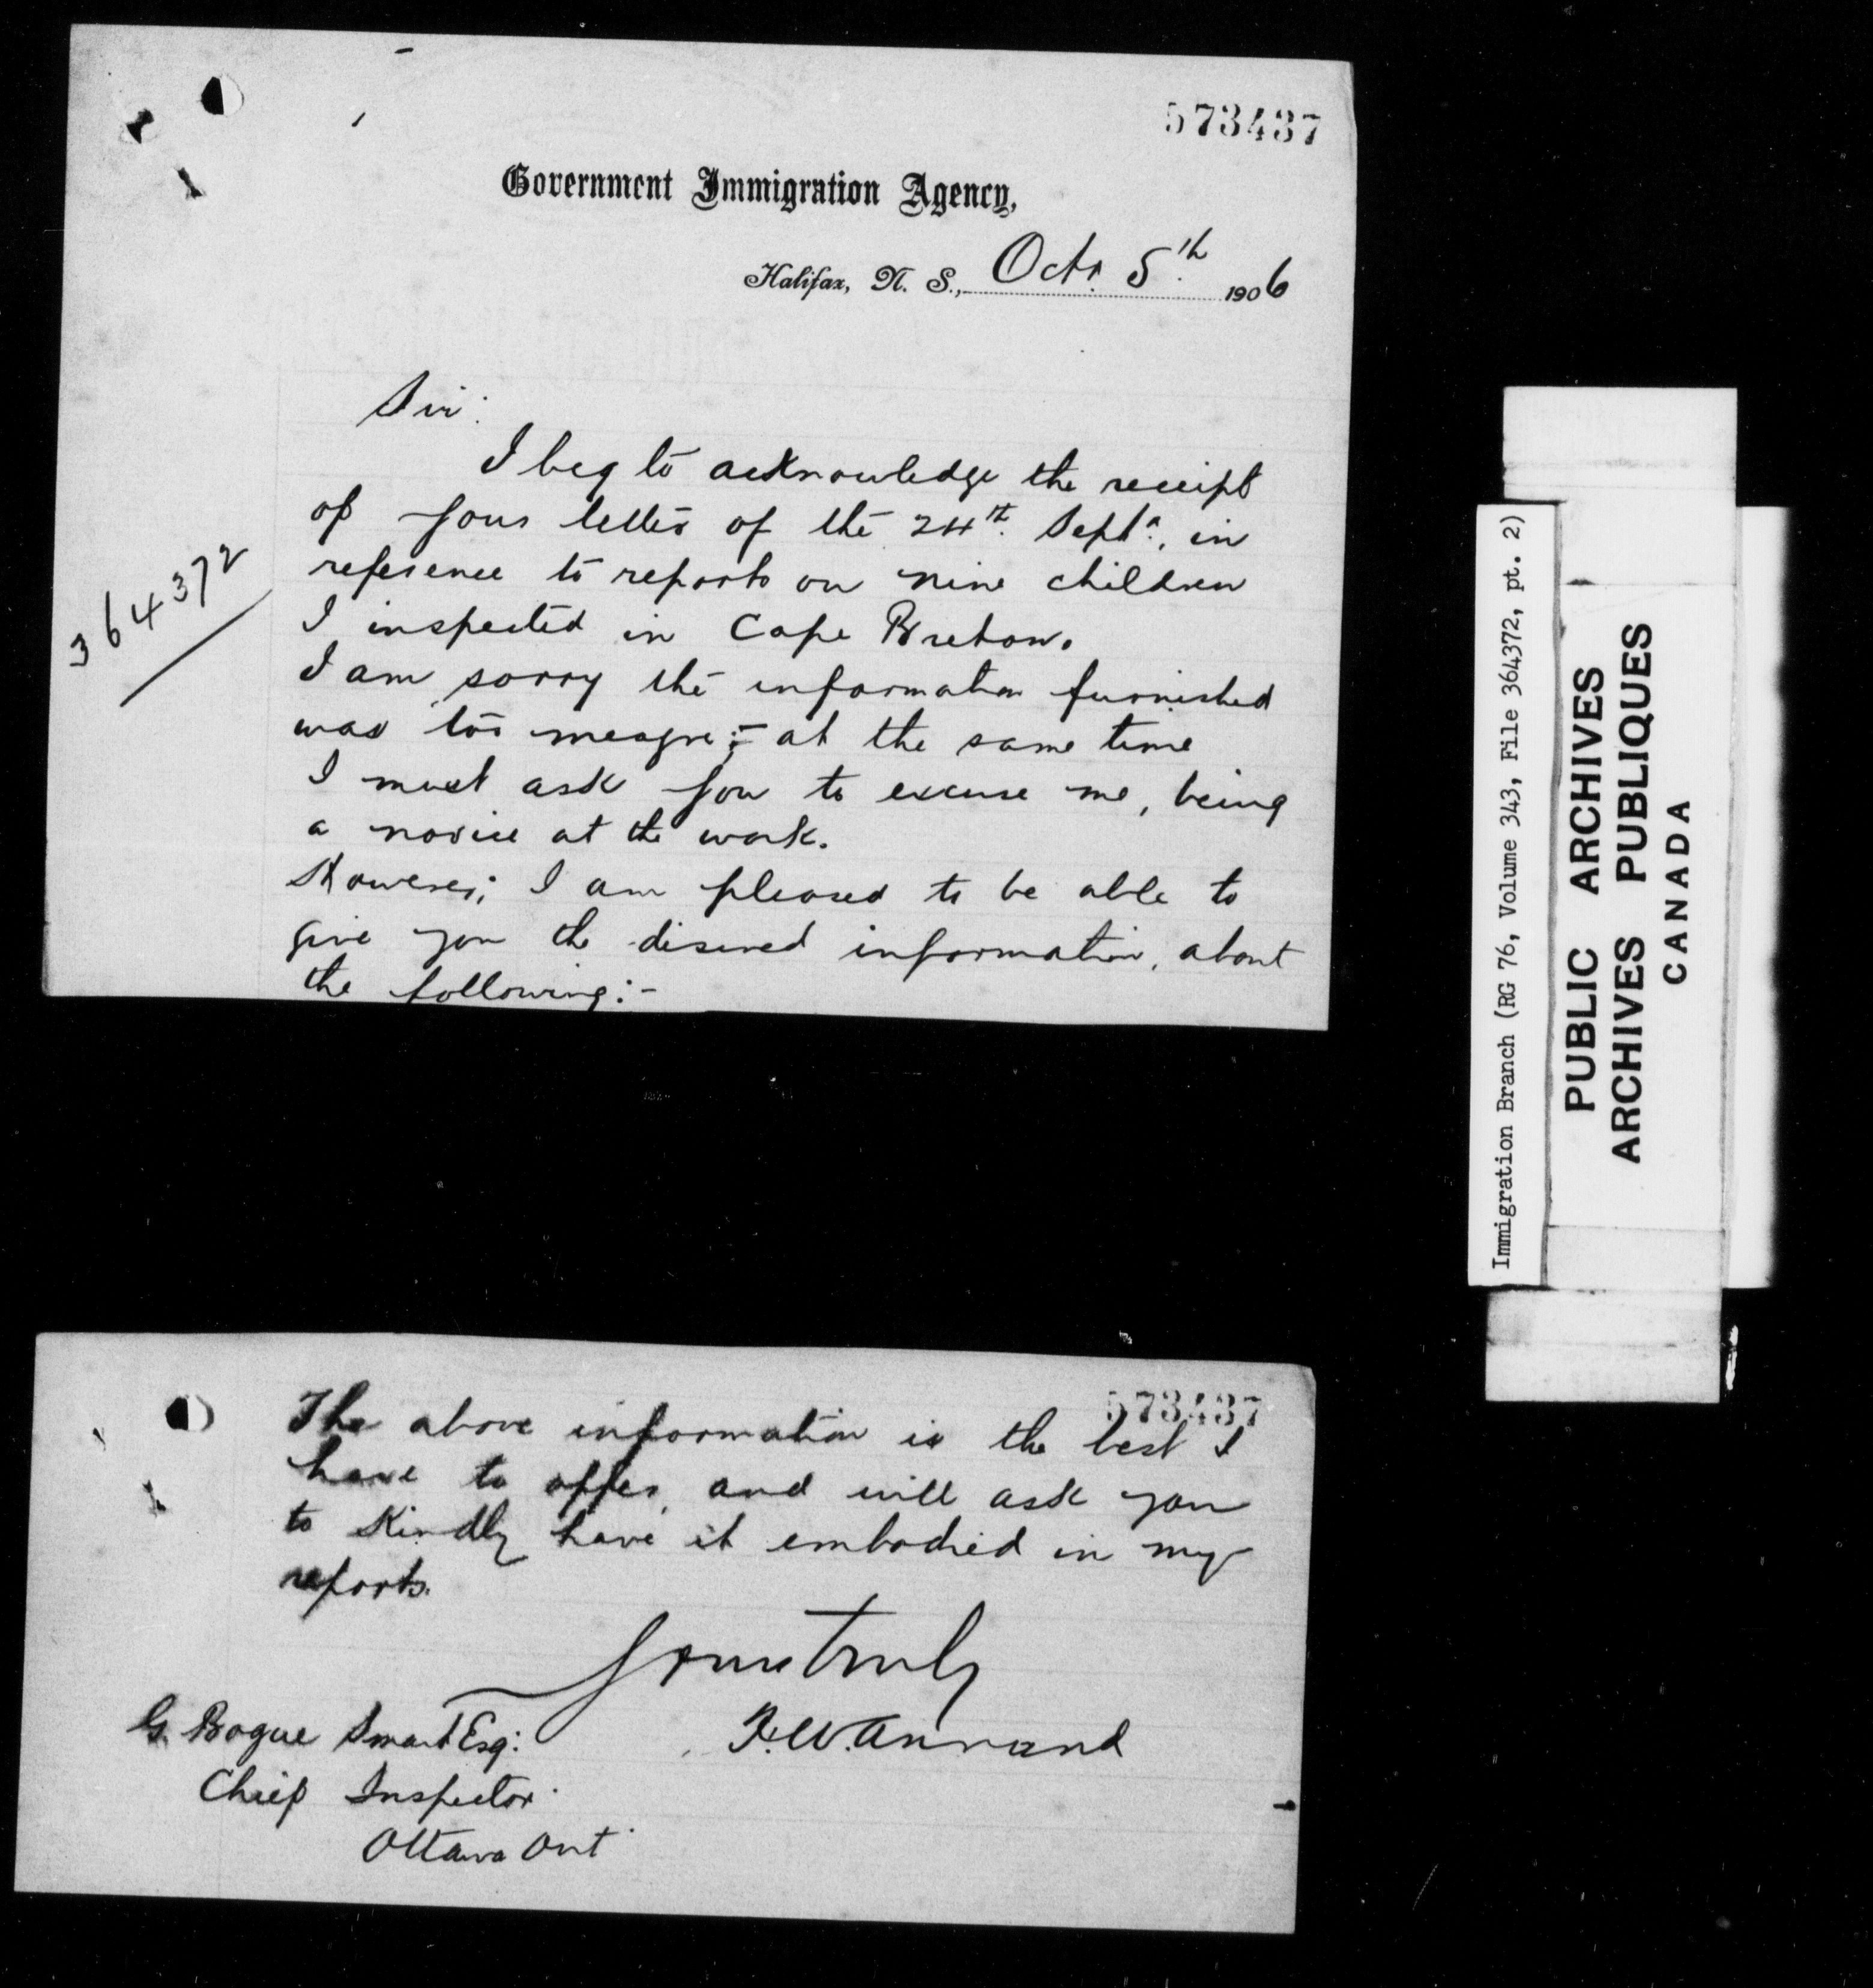 573437
Government Immigration Agency,
Halifax, N. S., Octr. 5th. 1906
Sir:
I beg to acknowledge the receipt
of your letter of the 24th. Septr., in
reference to reports on nine children
I inspected in Cape Breton.
364372
I am sorry the information furnished
was too meagre;- at the same time
I must ask you to excuse me, being
a novice at the work.
However; I am pleased to be able to
give you the disired information, about
the following:-
573437
The above information is the best I
have to offer, and will ask you
to Kindly have it embodied in my
reports.
Yours truly
F.W. Annand
G. Bogue Smart Esq:
Chief Inspector
Ottawa Ont
Immigration Branch (RG 76, Volume 343, File 364372, pt. 2)
PUBLIC ARCHIVES
ARCHIVES PUBLIQUES
CANADA